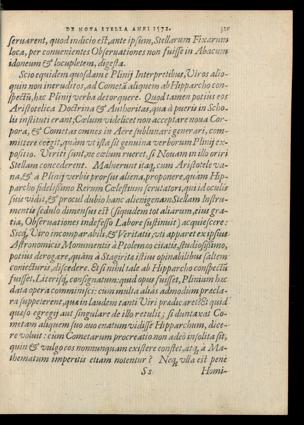 DE NOVA STELLA ANNI 1572.
seruarent, quod indicio est, ante ipsum, Stellarum Fixarum
loca, per conuenientes Obseruationes non fuisse in Abacum
idoneum & locupletem, digesta.
Scio equidem quosdam è Plinij Interpretibus, Viros alio-
quin non ineruditos, ad Cometã aliquem ab Hipparcho con-
spectũ, hæc Plinij verba detorquere. Quod tamen potius eos
Aristotelica Doctrina & Authoritas, qua à pueris in Scho-
lis instituti erant; Cælum videlicet non acceptare noua Cor-
pora, & Cometas omnes in Aere sublunari generari, com-
mittere coëgit, quàm vt ista sit genuina verborum Plinij ex-
positio. Veriti sunt, ne cœlum rueret, si Nouam in illo oriri
Stellam concederent. Maluerunt itaq; cum Aristotele va-
na, & à Plinij verbis prorsus aliena, proponere, quàm Hip-
parcho fidelissimo Rerum Cælestium scrutatori, qui id oculis
suis vidit, & procul dubio hanc alienigenam Stellam Instru-
mentis sedulo dimensus est (siquidem tot aliarum, eius gra-
tia, Obseruationes indefesso Labore sustinuit) acquiescere:
Sicq; Viro incomparabili, & Veritatis, vti apparet ex ipsius
Astronomicis Monumentis à Ptolemeo citatis, studiosissimo,
potius derogare, quàm à Stagirita istius opinabilibus saltem
coniecturis, discedere. Et si nihil tale ab Hipparcho conspectũ
fuisset, Literisq; consignatum: quid opus fuisset, Plinium hac
data opera comminisci: cum multa alias admodum præcla-
ra suppeterent, quæ in laudem tanti Viri prædicaret? Et quid
quæso egregij aut singulare de illo retulit; si duntaxat Co-
metam aliquem suo æuo enatum vidisse Hipparchum, dice-
re voluit: cùm Cometarum procreatio non adeò insolita sit,
quin & vulgo eos nonnunquam existere constet, atq; à Ma-
thematum imperitis etiam notentur? Neq; vlla est penè
Ss Homi-